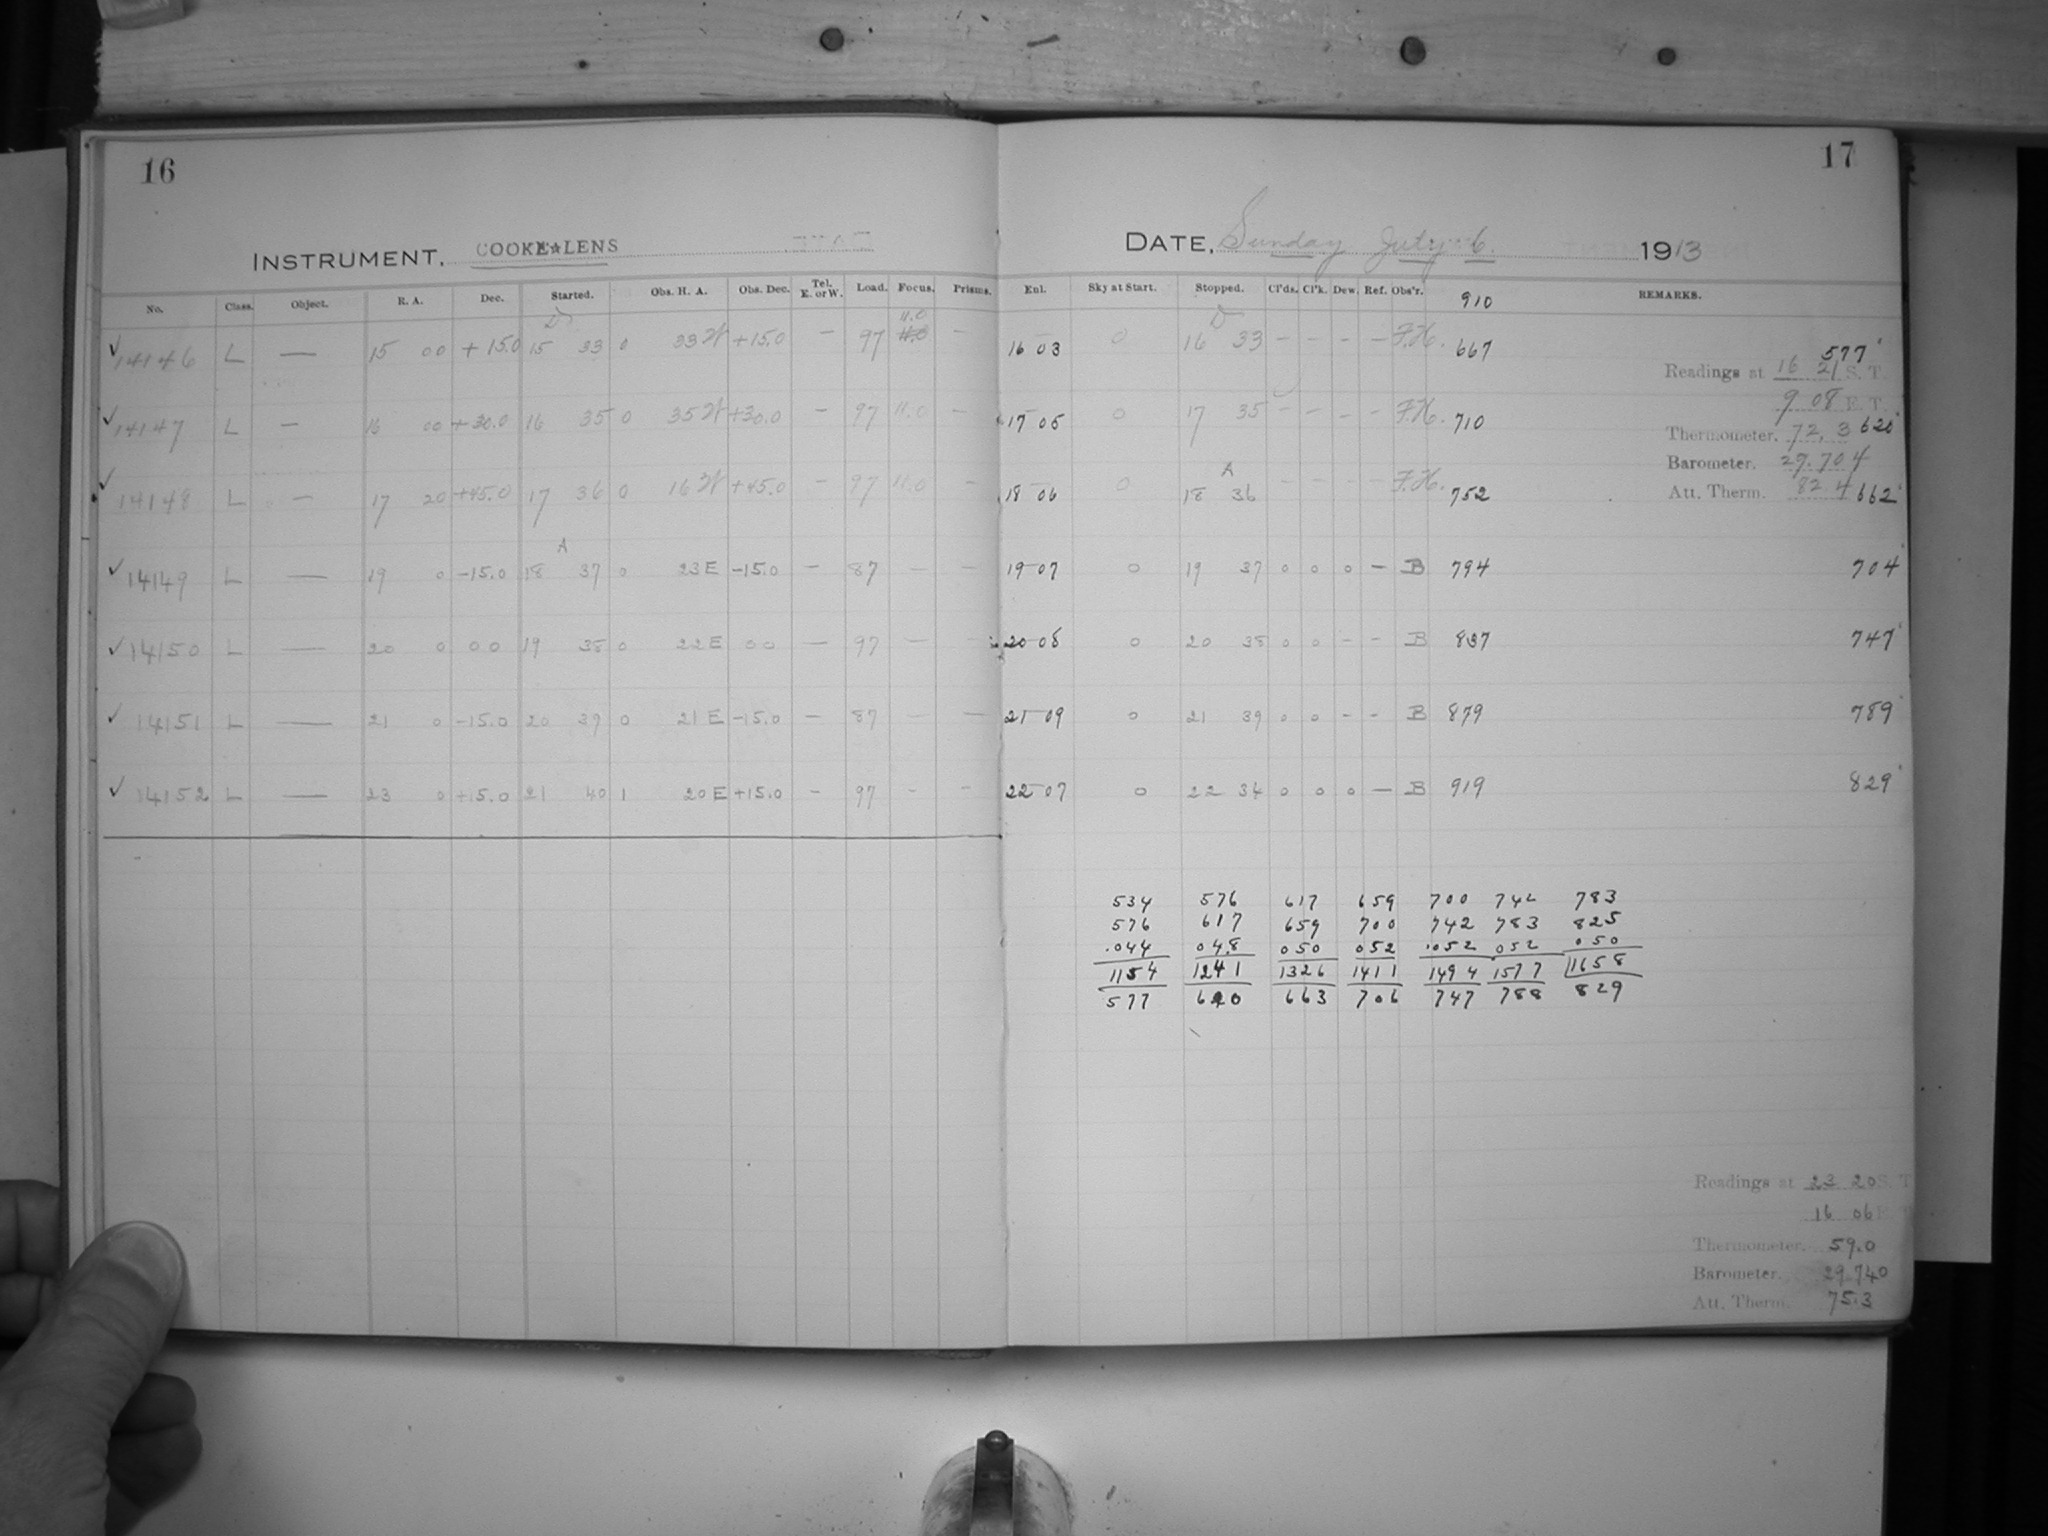 16
17
INSTRUMENT. COOKE★LENS
DATE, Sunday July 6. 1913
No. Class. Object. R. A. Dec. Started. Obs. H. A. Obs. Dec. Tel. E. or W. Load. Focus. Prisms. Enl. Sky at Start. Stopped. Cl'ds. Cl'k. Dew. Ref. Obs'r. 910 REMARKS.
✓ 14146 L — 15 00 +15.0 15 33 0 33 W +15.0 — 97 11.0 — 16 03 0 16 33 — — — — F.H. 667 577
Readings at 16 21 S. T.
9 08 E. T.
✓ 14147 L — 16 00 +30.0 16 35 0 35 W +30.0 — 97 11.0 — 17 05 0 17 35 — — — — F.H. 710 620
Thermometer. 72.3
Barometer. 29.704
Att. Therm. 82.4
✓ 14148 L — 17 20 +45.0 17 36 0 16 W +45.0 — 97 11.0 — 18 06 0 18 36 A — — — — F.H. 752 662
✓ 14149 L — 19 0 -15.0 18 37 A 0 23 E -15.0 — 87 — — 19 07 0 19 37 0 0 0 — B 794 704
✓ 14150 L — 20 0 0 0 19 38 0 22 E 0 0 — 97 — — 20 08 0 20 38 0 0 - - B 837 747
✓ 14151 L — 21 0 -15.0 20 39 0 21 E -15.0 — 87 — — 21 09 0 21 39 0 0 - - B 879 789
✓ 14152 L — 23 0 +15.0 21 40 1 20 E +15.0 — 97 - - 22 07 0 22 34 0 0 0 — B 919 829
534 576 617 659 700 742 783
576 617 659 700 742 783 825
.044 048 050 052 .052 052 050
1154 1241 1326 1411 1494 1577 1658
577 620 663 706 747 788 829
Readings at 23 20 S. T.
16 06 E.
Thermometer. 59.0
Barometer. 29.740
Att. Therm. 75.3